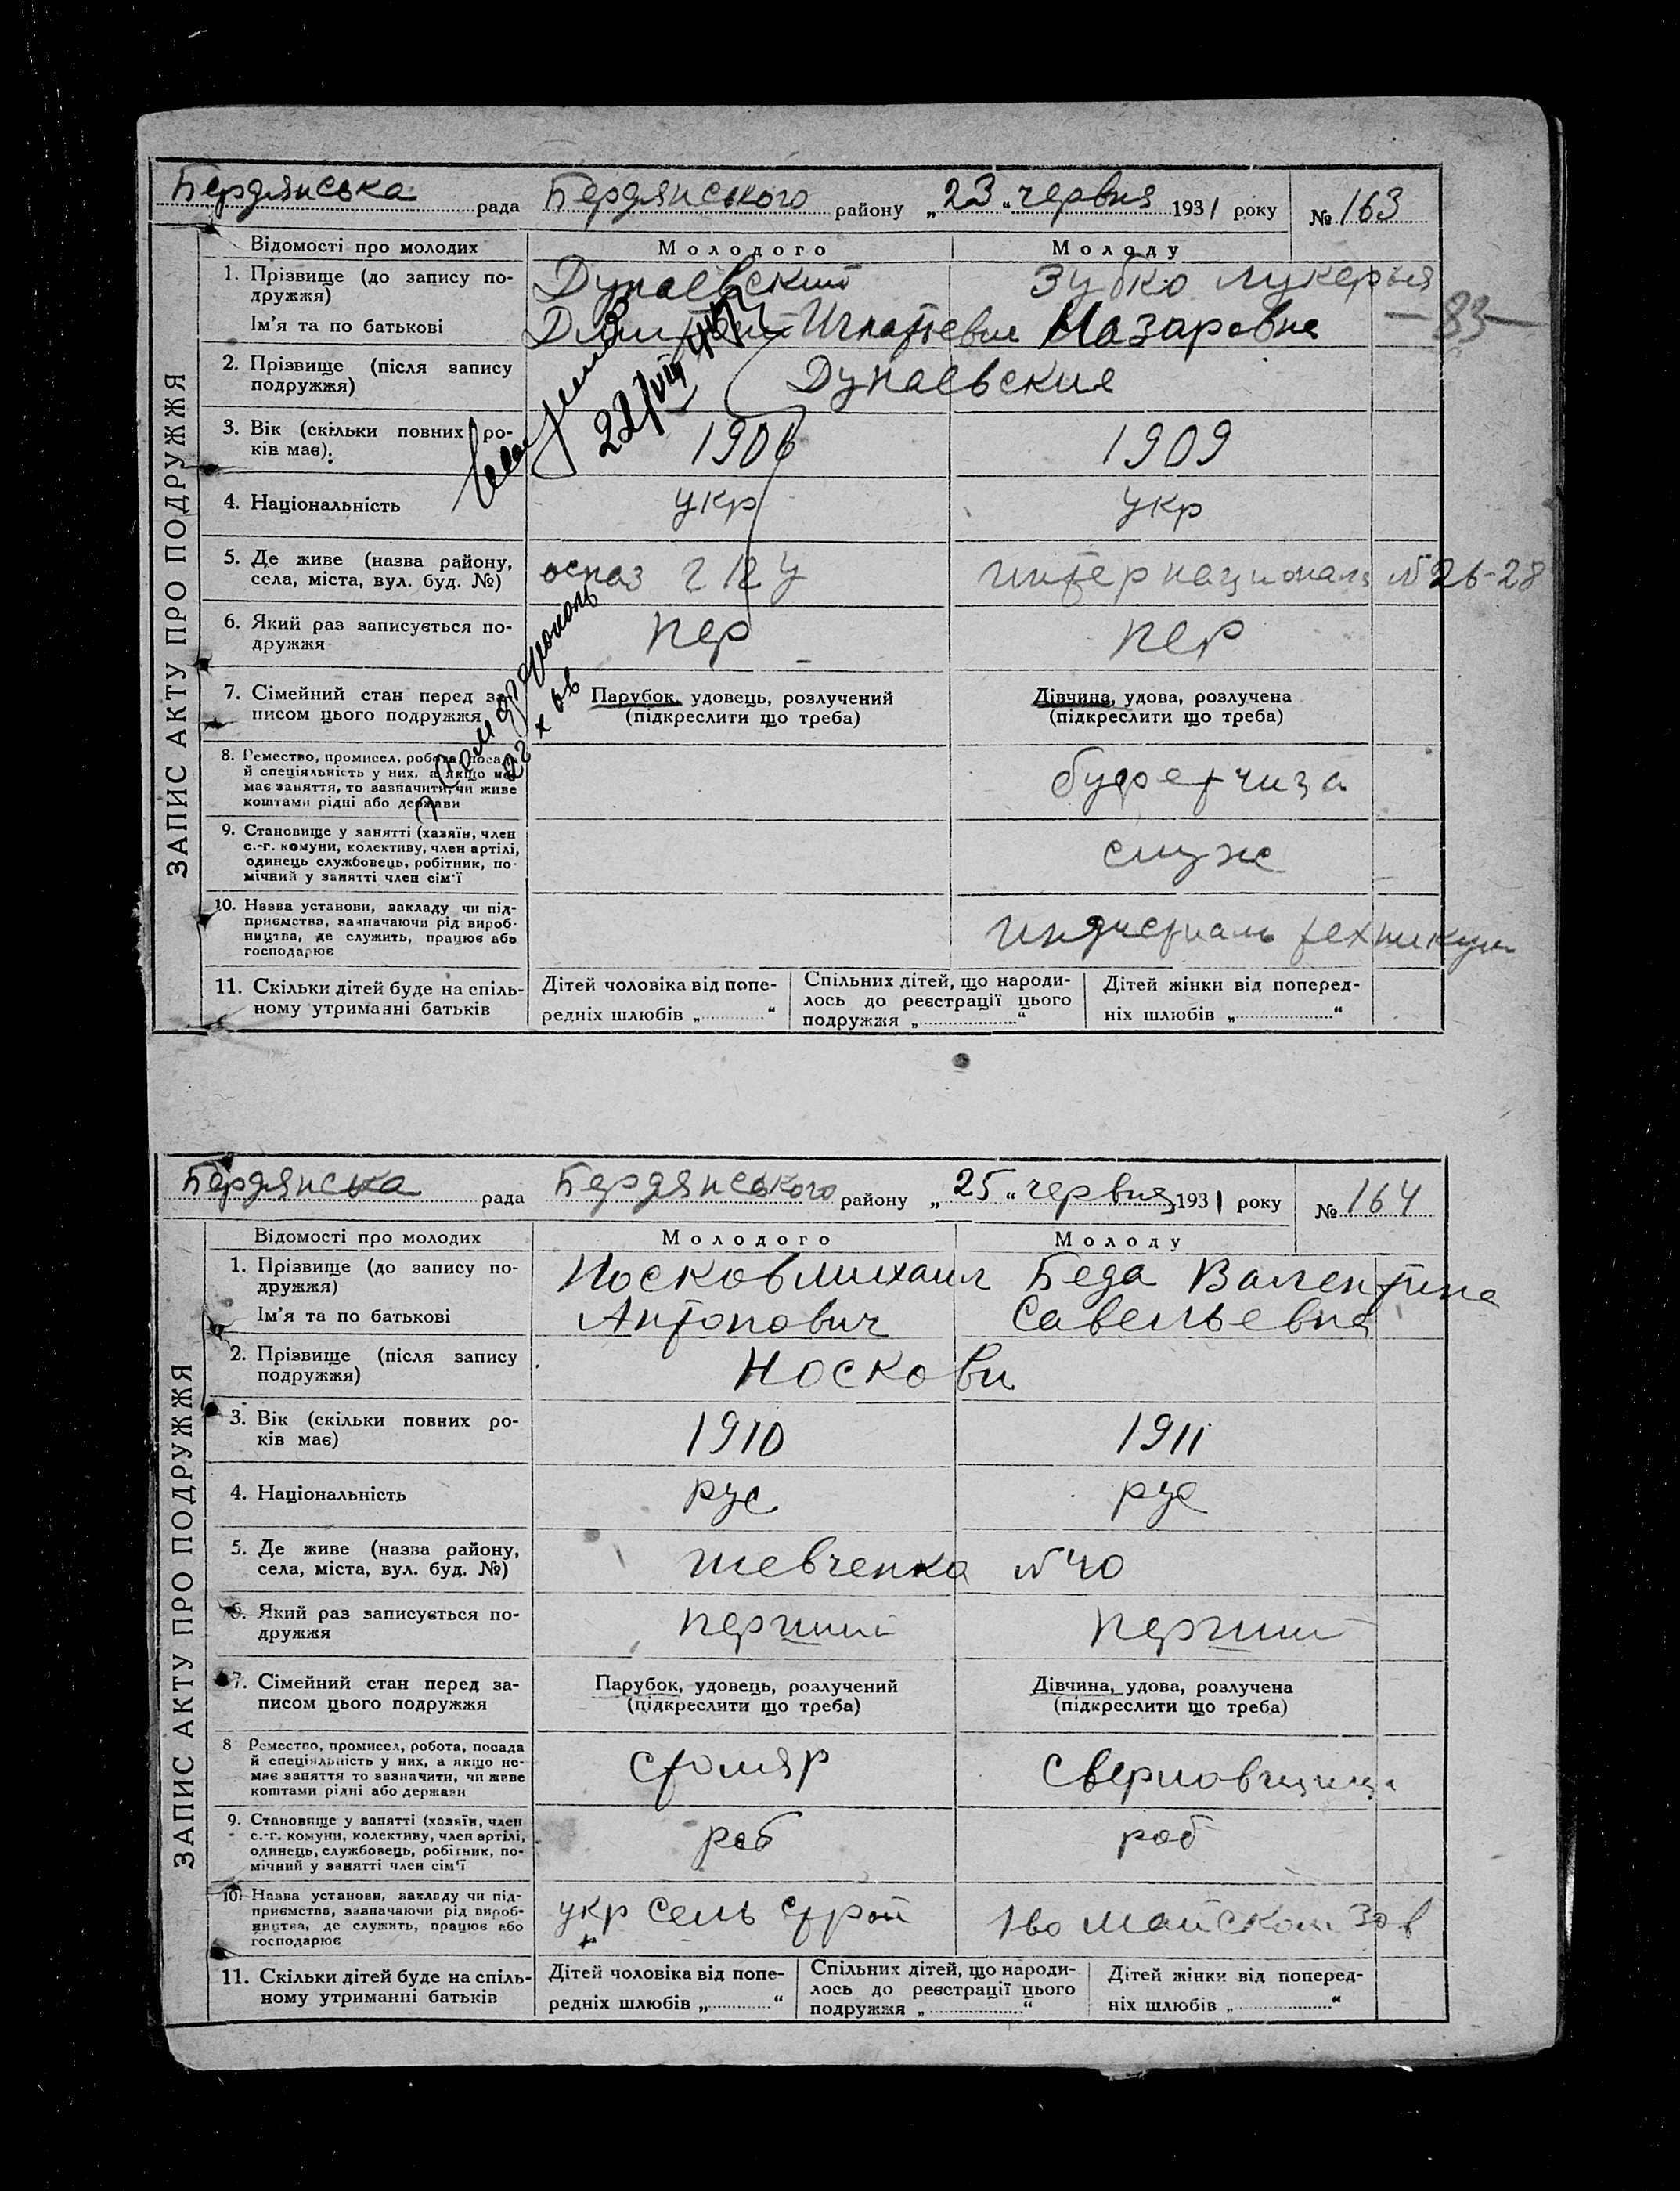 Бердянська рада Бердянського району „23“ червня 1931 року № 163
ЗАПИС АКТУ ПРО ПОДРУЖЖЯ
Відомості про молодих Молодого Молоду
1. Прізвище (до запису по-
дружжя) Дунаевский Зубко Лукерья
Ім’я та по батькові Дмитрий Игнатьевич Назаровна
— 83 —
2. Прізвище (після запису
подружжя) Дунаевские
3. Вік (скільки повних ро-
ків має). 1906 1909
4. Національність укр укр
5. Де живе (назва району,
села, міста, вул. буд. №) г п у интернационал №26-28
6. Який раз записується по-
дружжя пер пер
7. Сімейний стан перед за-
писом цього подружжя
Парубок, удовець, розлучений
(підкреслити що треба)
Дівчина, удова, розлучена
(підкреслити що треба)
8. Ремество, промисел, робота, посада
й спеціяльність у них, а якщо не
має заняття, то зазначити, чи живе
коштами рідні або держави
буфетчиза
9. Становище у занятті (хазяїн, член
с.-г. комуни, колективу, член артілі,
одинець службовець, робітник, по-
мічний у занятті член сім’ї
служ
10. Назва установи, закладу чи під-
приємства, зазначаючи рід вироб-
ництва, де служить, працює або
господарює
техникум
11. Скільки дітей буде на спіль-
ному утриманні батьків
Дітей чоловіка від попе-
редніх шлюбів „ “
Спільних дітей, що народи-
лось до реєстрації цього
подружжя „ “
Дітей жінки від поперед-
ніх шлюбів „ “
Бердянська рада Бердянського району „25“ червня 1931 року № 164
ЗАПИС АКТУ ПРО ПОДРУЖЖЯ
Відомості про молодих Молодого Молоду
1. Прізвище (до запису по-
дружжя) Носков Михаил Беда Валентина
Ім’я та по батькові Антонович Савельевна
2. Прізвище (після запису
подружжя) Носкови
3. Вік (скільки повних ро-
ків має) 1910 1911
4. Національність рус рус
5. Де живе (назва району,
села, міста, вул. буд. №) Шевченка №40
6. Який раз записується по-
дружжя перший перший
7. Сімейний стан перед за-
писом цього подружжя
Парубок, удовець, розлучений
(підкреслити що треба)
Дівчина, удова, розлучена
(підкреслити що треба)
8 Ремество, промисел, робота, посада
й спеціяльність у них, а якщо не-
має заняття то зазначити, чи живе
коштами рідні або держави
столяр сверловщица
9. Становище у занятті (хазяїн, член
с.-г. комуни, колективу, член артілі,
одинець, службовець, робітник, по-
мічний у занятті член сім’ї
раб роб
10. Назва установи, закладу чи під-
приємства, зазначаючи рід вироб-
ництва, де служить, працює або
господарює
укр сель строй 1во майском зов
11. Скільки дітей буде на спіль-
ному утриманні батьків
Дітей чоловіка від попе-
редніх шлюбів „ “
Спільних дітей, що народи-
лось до реєстрації цього
подружжя „ “
Дітей жінки від поперед-
ніх шлюбів „ “